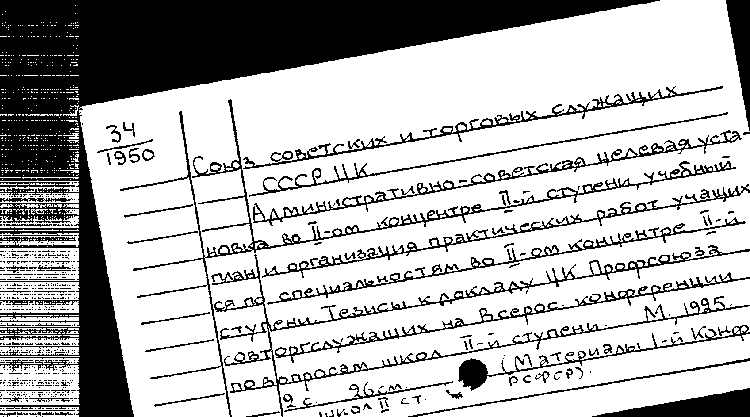 34
1950
Союз советских и торговых служащих
СССР. ЦК
Административно-советская целевая уста-
новка во II-ом концентре II-й ступени, учебный
план и организация практических работ учащих
ся по специальностям во II-ом концентре II-й
ступени. Тезисы к докладу ЦК Профсоюза
совторгслужащих на Всерос. конференции
по вопросам школ II-й ступени. М., 1925.
2 с. 26 см. (Материалы 1-й Конф
школ II ст. РСФСР).